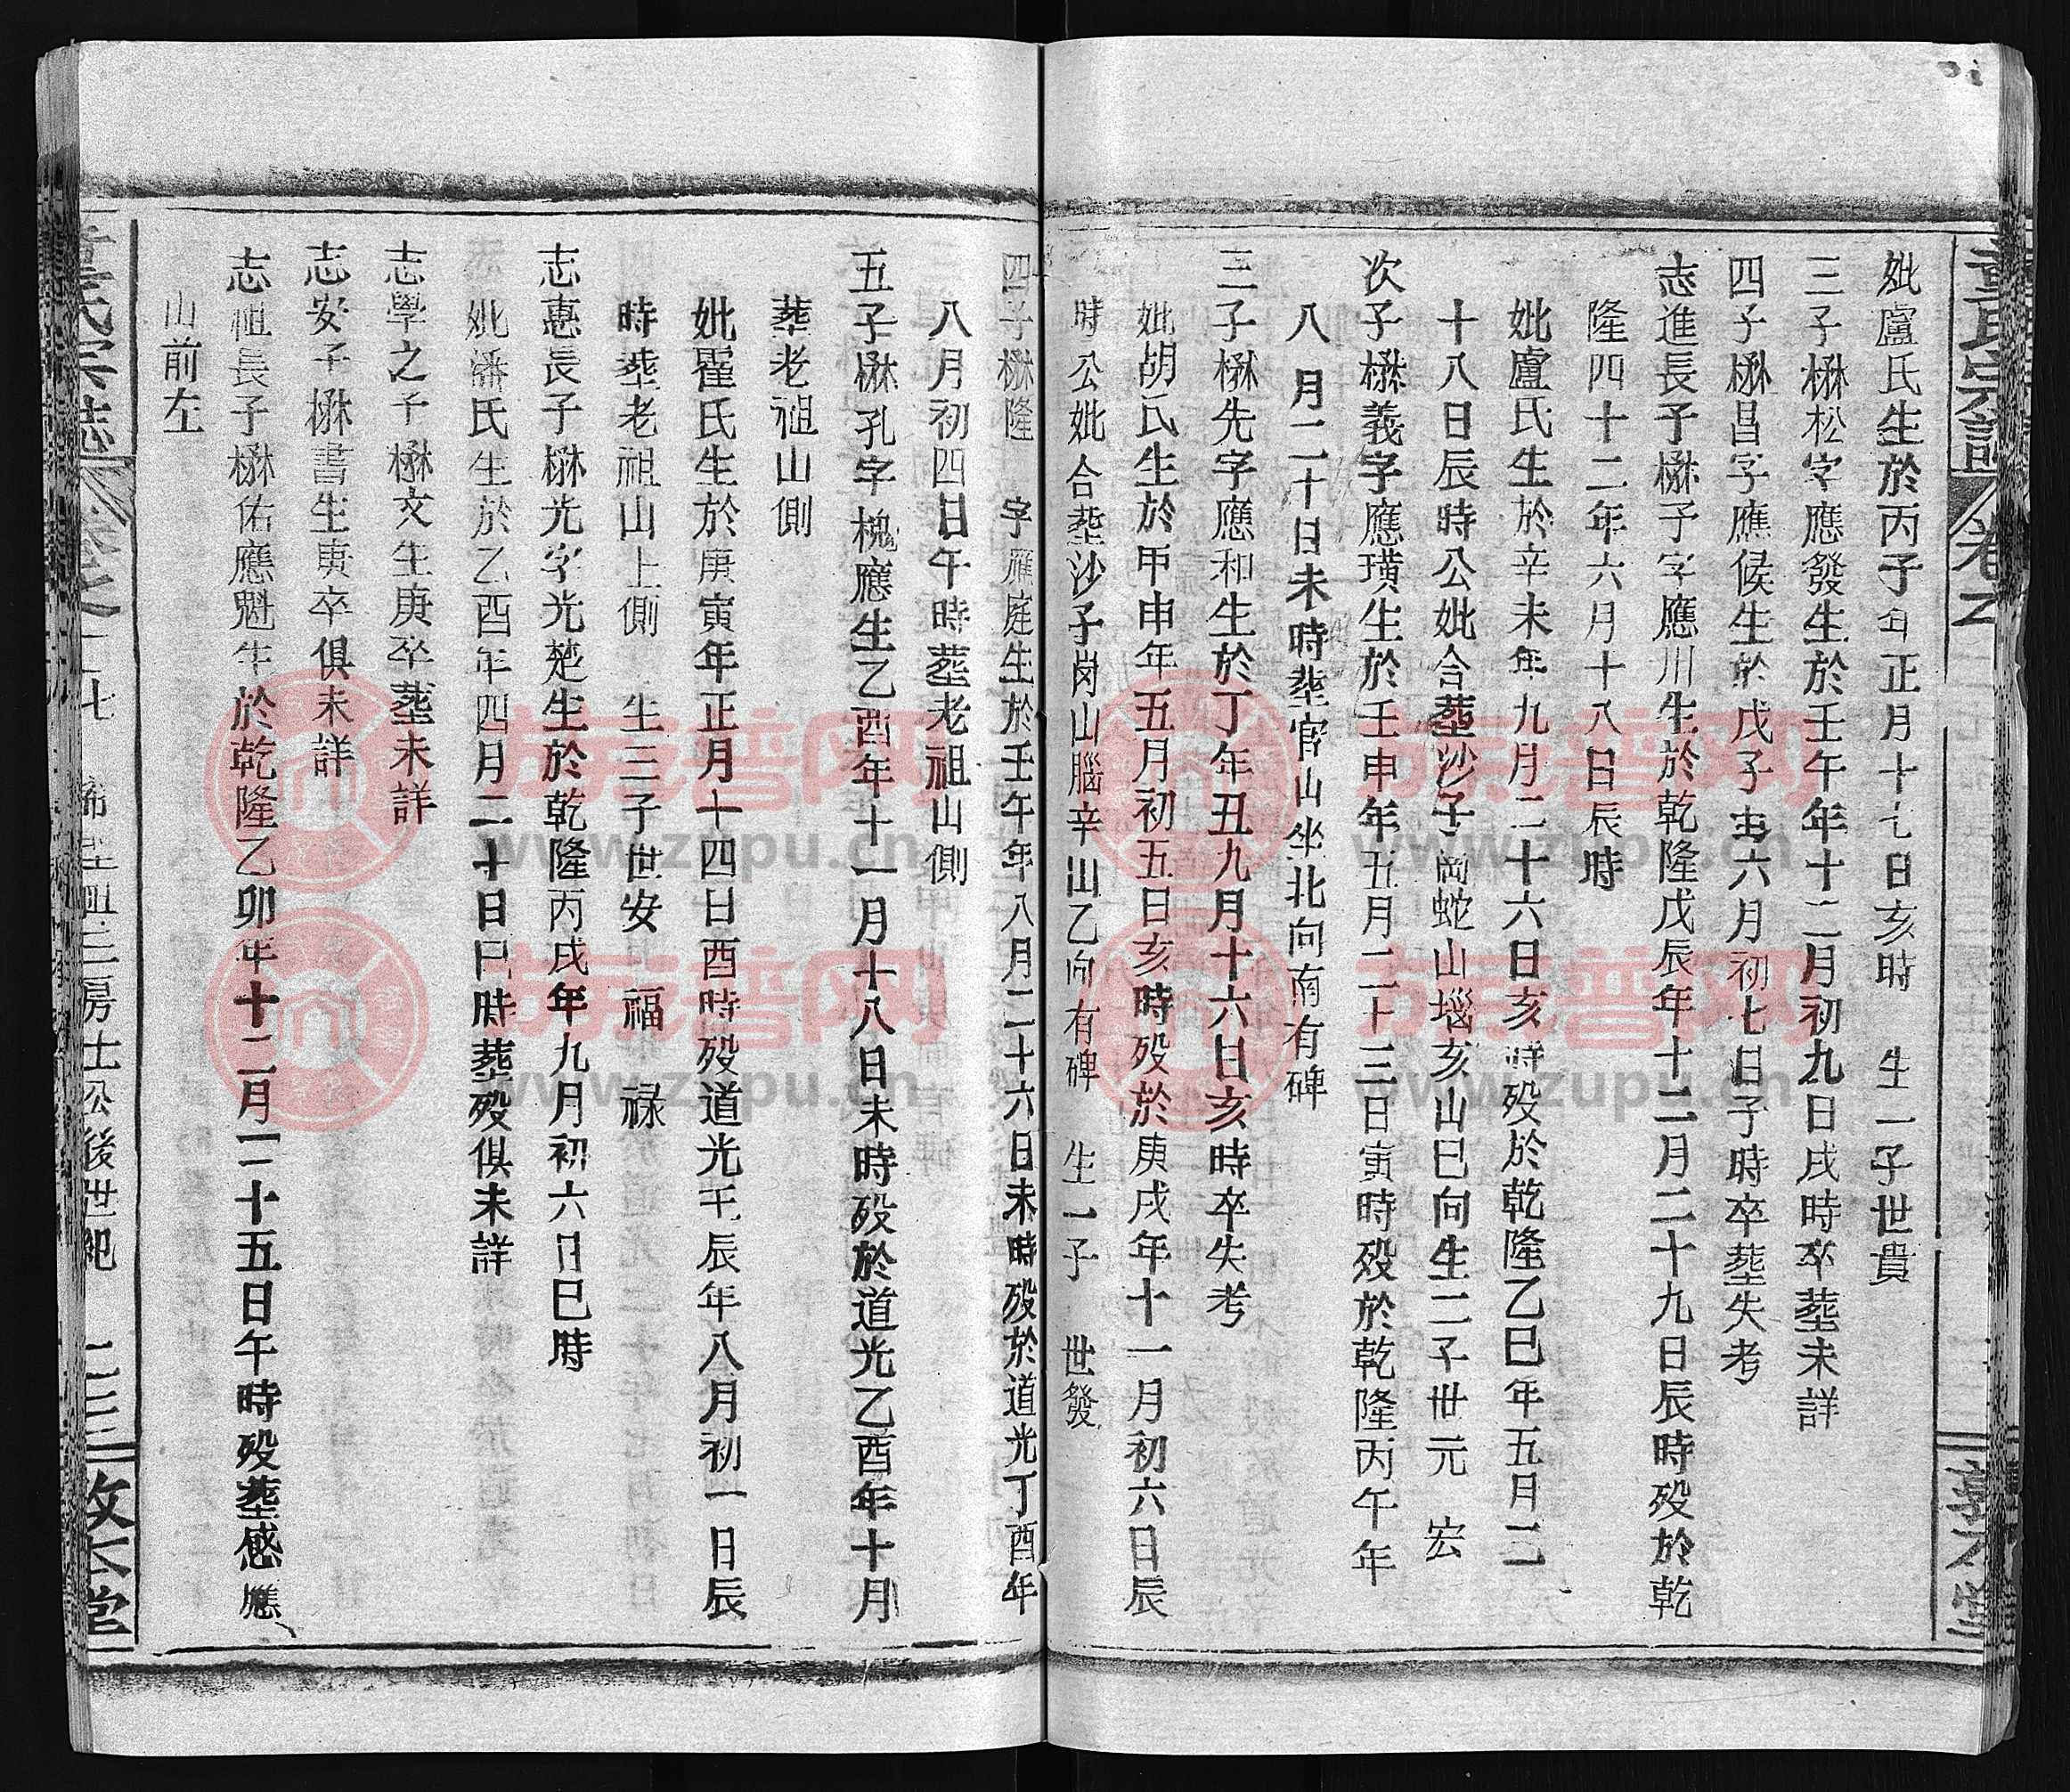 妣盧氏生於丙子年正月十七日亥時 生一子世貴
三子楙松字應發生於壬午年十二月初九日戌時卒塟未詳
四子楙昌字應候生於戊子年六月初七日子時卒塟失考
志進長子楙子字應川生於乾隆戊辰年十二月二十九日辰時殁於乾
隆四十二年六月十八日辰時
妣盧氏生於辛未年九月二十六日亥時殁於乾隆乙巳年五月二
十八日辰時公妣合塟沙子崗蛇山堖亥山巳向生二子世元 宏
次子楙義字應璜生於壬申年五月二十三日寅時殁於乾隆丙午年
八月二十日未時塟官山坐北向南有碑
三子楙先字應和生於丁年丑九月十六日亥時卒失考
妣胡氏生於甲申年五月初五日亥時殁於庚戌年十一月初六日辰
時公妣合塟沙子崗山腦辛山乙向有碑 生一子 世發
四子楙隆 字應庭生於壬午年八月二十六日未時殁於道光丁酉年
八月初四日午時塟老祖山側
五子楙孔字槐應生乙酉年十一月十八日未時殁於道光乙酉年十月
葬老祖山側
妣翟氏生於庚寅年正月十四日酉時殁道光壬辰年八月初一日辰
時塟老祖山上側 生三子世安 福 禄
志惠長子楙光字光楚生於乾隆丙戌年九月初六日巳時
妣潘氏生於乙酉年四月二十日巳時葬殁俱未詳
志學之子楙文生庚卒塟未詳
志安子楙書生庚卒俱未詳
志祖長子楙佑應魁生於乾隆乙卯年十二月二十五日午時殁塟感應
山前左
童氏宗誌 卷之二七 三房士公後世紀 二三 敦本堂